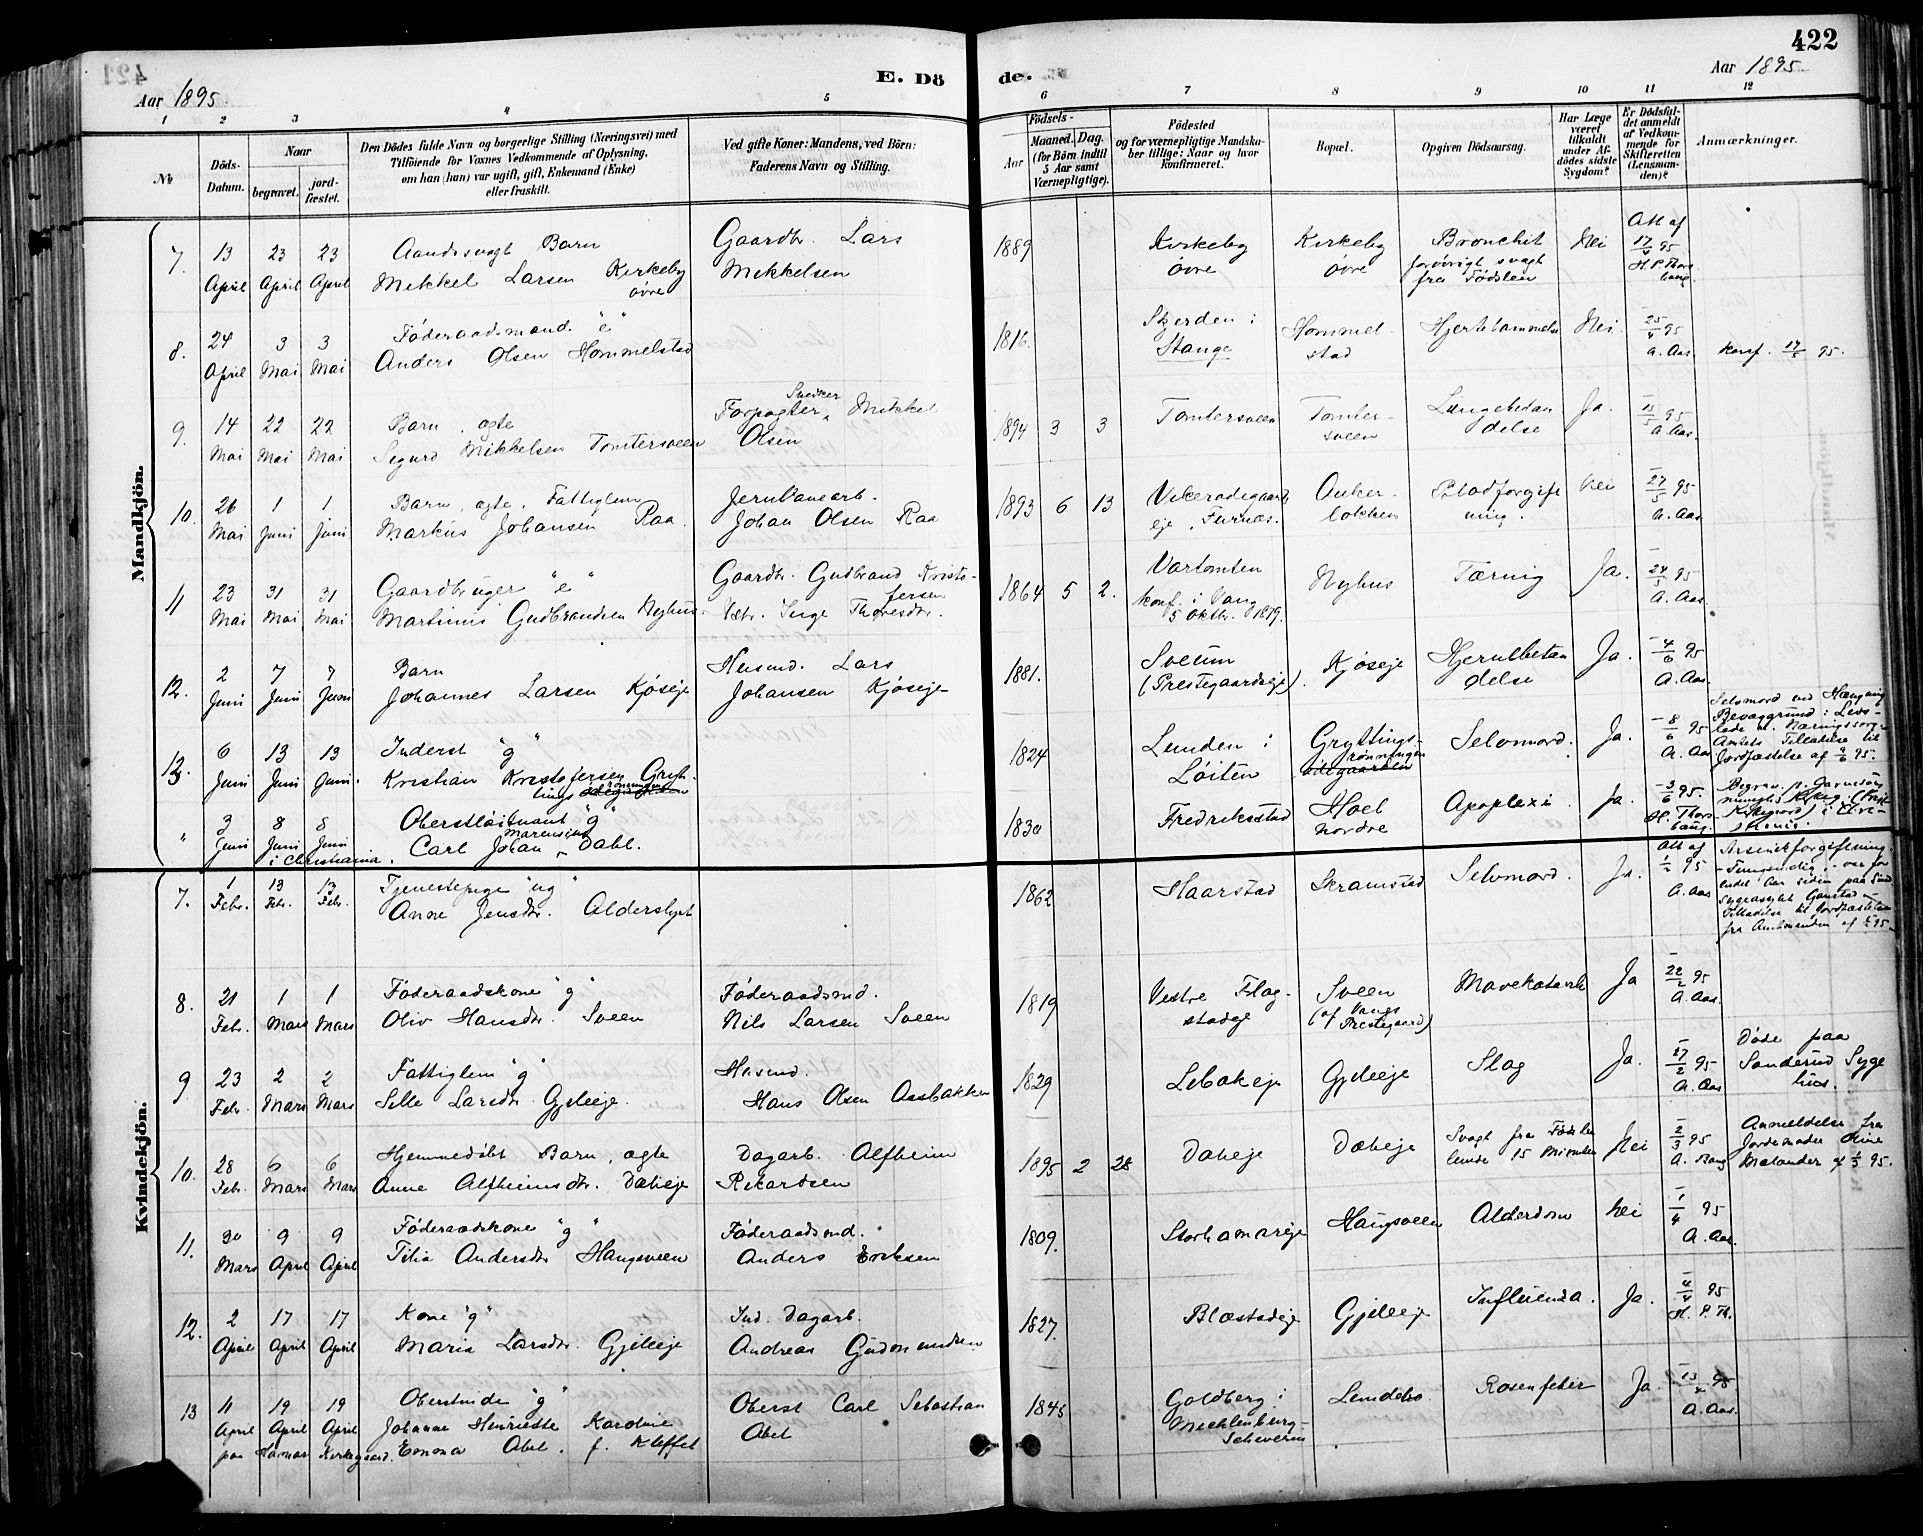 422
E. Dö
de.
Aar 1895.
Aar 1895
1
2
3
4
5
6
7
8
9
10
11
12
№
Döds-
Datum.
Naar
begravet.
jord-
fæstet.
Den Dödes fulde Navn og borgerlige Stilling (Næringsvei) med
Tilföiende for Voxnes Vedkommende af Oplysning,
om han (hun) var ugift, gift, Enkemand (Enke)
eller fraskilt.
Ved gifte Koner: Mandens, ved Börn:
Faderens Navn og Stilling.
Födsels-
Aar
Maaned.
Dag.
(for Börn indtil
5 Aar samt
Værnepligtige).
Födested
og for værnepligtige Mandska-
ber tillige: Naar og hvor
konfirmeret.
Bopæl.
Opgiven Dödsaarsag.
Har Læge
været
tilkaldt
under Af-
dödes sidste
Sygdom?
Er Dödsfal-
det anmeldt
af Vedkom-
mende for
Skifteretten
(Lensman-
den)?
Anmærkninger.
Mandkjön.
7.
13
April
23
April
23
April
Aandssvagt Barn
Mikkel Larsen Kirkeby
övre
Gaardbr. Lars
Mikkelsen
1889
Kirkeby
övre
Kirkeby
övre
Bronchit
forövrigt svagt
fra Födslen
Nei
Att af
17/4 95
H. P. Thors
haug.
8.
24
April
3
Mai
3
Mai
Föderaadsmand "e"
Anders Olsen Hommelstad
1816.
Skjerden i
Stange
Hommel-
stad
Hjertelammelse
Nei
25/4 95
A. Aas.
Konf. 17/5 95.
9.
14
Mai
22
Mai
22
Mai
Barn, ægte
Sigurd Mikkelsen Tomtersveen
Sneiker
Forpagter, Mikkel
Olsen
1894
3
3
Tomtersveen
Tomter-
sveen
Lungebetæn
delse
Ja.
15/5 95
A. Aas.
10.
26
Mai
1
Juni
1
Juni
Barn, ægte, Fattiglem
Markus Johansen Raa.
Jernbanearb.
Johan Olsen Raa
1893
6
13
Vikerödegaard
eje, Furnæs.
Anker-
lökken
Blodforgift
ning.
Nei
27/5 95
A. Aas.
11
23
Mai
31
Mai
31
Mai
Gaardbruger "e"
Martinus Gudbrandsen Nyhus.
Gaardbr. Gudbrand Kristo-
fersen
Inge Thoresdtr.
1864
5
2.
Vartomten
konf. i Vang
5 Oktbr. 1879.
Nyhus
Tæring
Ja.
24/5 95
A. Aas.
12.
2
Juni
7
Juni
7
Juni
Barn
Johannes Larsen Kjöseje
Husmd. Lars
Johansen Kjöseje
1881.
Sveum
(Prestegaardseje).
Kjöseje
Hjernebetæn
delse
Ja.
4/6 95
A. Aas.
13.
6
Juni
13
Juni
13
Juni.
Inderst "g"
Kristian Kristofersen Gryt-
tings
rönningen
1824
Lunden i
Löiten
Gryttings-
rönningen
ödegaarden
Selvmord.
Ja.
8/6 95
A. Aas
Selvmord ved Hængning
Bevæggrund: Livs-
lede
Amtets Tilladelse til
Jordfæstelse af 9/6 95.
"
3
Juni
8
Juni
8
Juni
i Christiania.
Oberstlöitnant "g"
Marensius
Carl Johan Dahl.
1830
Fredriksstad
Hoel
nordre
Apoplexi
Ja.
3/6 95.
H. Thors
haug.
Begrav. p. Garnisons
Kvindekjön.
7.
1
Febr.
13
Febr.
13
Febr.
Tjenestepige "ug"
Anne Jensdtr. Alderslyst
1862
Haarstad
Skramstad
Selvmord.
Ja.
Att af
1/2 95
A. Aas
Arsenikforgiftning.
Sygeasylet Gaustad
Tilladelse til Jordfæstelse
fra Amtmanden af
8.
21
Febr.
1
Mars
1
Mars
Föderaadskone "g"
Oliv Hansdtr. Sveen
Föderaadsmd.
Nils Larsen Sveen
1819
Vestre Flag-
stadeje
Sveen
(af Vangs
Prestegaard)
Mavekatarrh
Ja
22/2 95
A. Aas.
9
23
Febr.
2
Mars
2
Mars
Fattiglem "g"
Sille Larsdtr. Gjileeje.
Husmd.
Hans Olsen Aasbakken
1829
Lebakeje
Gjileeje
Slag
Ja.
27/2 95
A. Aas
Döde paa
Sanderud Syge
hus.
10.
28
Febr.
6
Mars
6
Mars
Hjemmedöbt Barn, ægte
Anne Alfheimsdtr. Dæleje
Dagarb. Alfheim
Rikardsen
1895
2
28
Dæleje
Dæleje
Svagt fra Födslen
levede 15 Minuter
Nei
2/3 95
A. Bang
Anmeldelse fra
Jordemoder Oline
Melander af 1/3 95.
11.
30
Mars
9
April
9
April
Föderaadskone "g"
Tilia Andersdtr Haugsveen
Föderaadsmd.
Anders Eriksen
1809.
Storhamareje
Haugsveen
Alderdom
Nei
1/4 95
A. Aas.
12.
2
April
17
April
17
April
Kone "g"
Maria Larsdtr. Gjileeje
Ind. Dagarb.
Andreas Gudmundsen
1827.
Blæstadeje
Gjileeje
Influenza.
Ja.
4/4 95
H. P. Th.
13
11
April
19
April
19
April
paa Hamar Kirkegaard.
Oberstinde "g"
Johanne Henriette Karoline
Emma Abel. f. Kleffel
Oberst Carl Sebastian
Abel
1845
Goldberg i
Mecklenburg-
Schwerin
Lundebo.
Rosenfeber
Ja.
13/4 95
A. Aas.